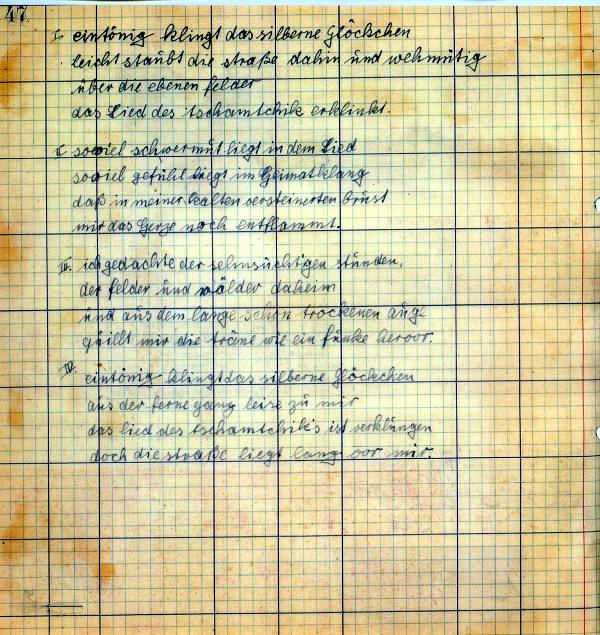 47
I. eintönig klingt das silberne Glöckchen
leicht staubt die straße dahin und wehmütig
über die ebenen felder
das Lied des tschamtchik erklinkt.
II. soviel schwermut liegt in dem Lied
soviel gefühl liegt im Heimatklang
daß in meiner kalten versteinerten brust
mir das Herze noch entflammt.
III. ich gedachte der sehnsüchtigen stunden,
der felder und wälder daheim
und aus dem lange schon trockenen auge
quillt mir die träne wie ein funke hervor.
IV. eintönig klingt das silberne Glöckchen
aus der ferne ganz leise zu mir
das lied des tschamtchik's ist verklungen
doch die straße liegt lang vor mir.